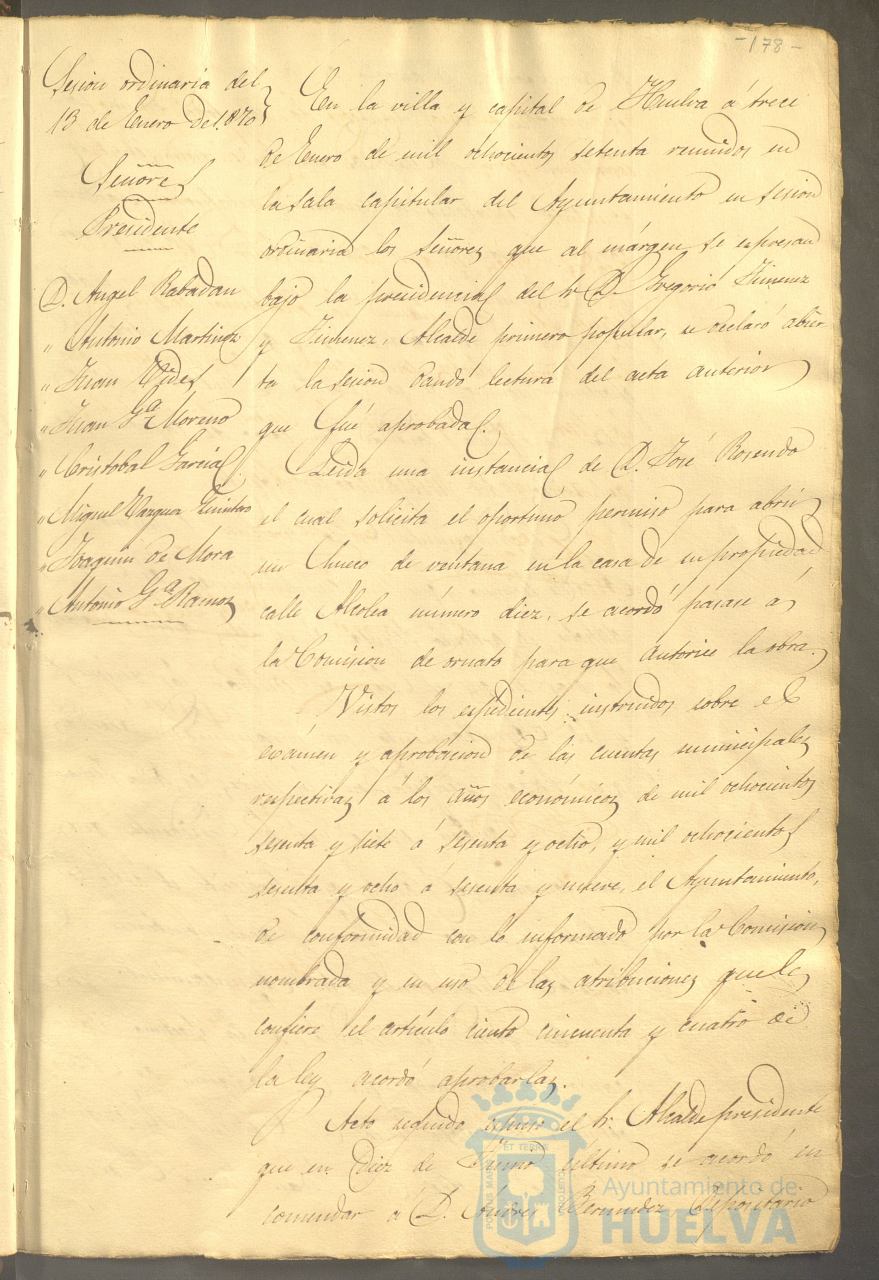 -178-
Sesion ordinaria del
13 de Enero de 1.870
Señores
Presidente
D. Angel Rabadan
" Antonio Martinez
" Juan Vides
" Juan Ga. Moreno
" Cristobal Garcia
" Miguel Vazquez Quintero
" Joaquin de Mora
" Antonio Ga. Ramos
En la villa y capital de Huelva á trece
de Enero de mil ochocientos setenta reunidos en
la sala capitular del Ayuntamiento en sesion
ordinaria los Señores que al márgen se espresan
bajo la presidencia del Sr. D. Gregorio Jimenez
y Jimenez, Alcalde primero popular, se declaró abier-
ta la sesion dando lectura del acta anterior
que fué aprobada.
Leida una instancia de D. José Rosendo
el cual solicita el oportuno permiso para abrir
un hueco de ventana en la casa de su propiedad
calle Alcolea número diez, se acordó pasase á
la Comision de ornato para que autorice la obra.
Vistos los espedientes instruidos sobre el
exámen y aprobacion de las cuentas municipales
respectivas á los años económicos de mil ochocientos
sesenta y siete á sesenta y ocho, y mil ochocientos
sesenta y ocho á sesenta y nueve, el Ayuntamiento,
de conformidad con lo informado por la Comision
nombrada y en uso de las atribuciones que le
confiere el artículo ciento cincuenta y cuatro de
la ley acordó aprobarlas.
Acto seguido espuso el Sr. Alcalde presidente
que en diez de último se acordó en
comendar á D. Andres Bermudez, Depositario
Ayuntamiento de
HUELVA